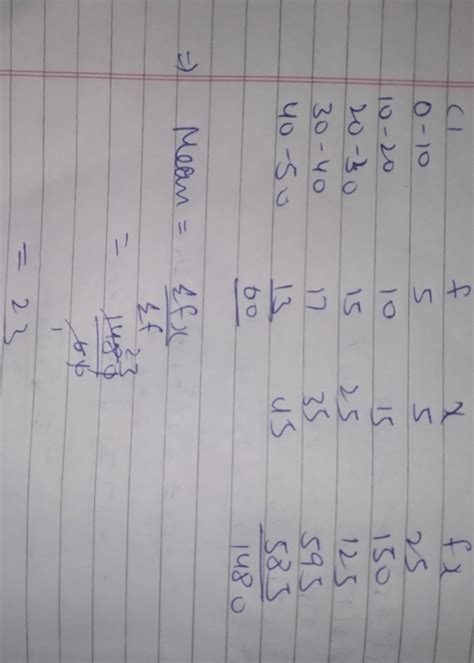 CI f x fx
0-10 5 5 25
10-20 10 15 150
20-30 15 25 125
30-40 17 35 595
40-50 13 45 585
60 1480
⇒ Mean = Σfx
Σf
= 1480 23
60 1
= 23